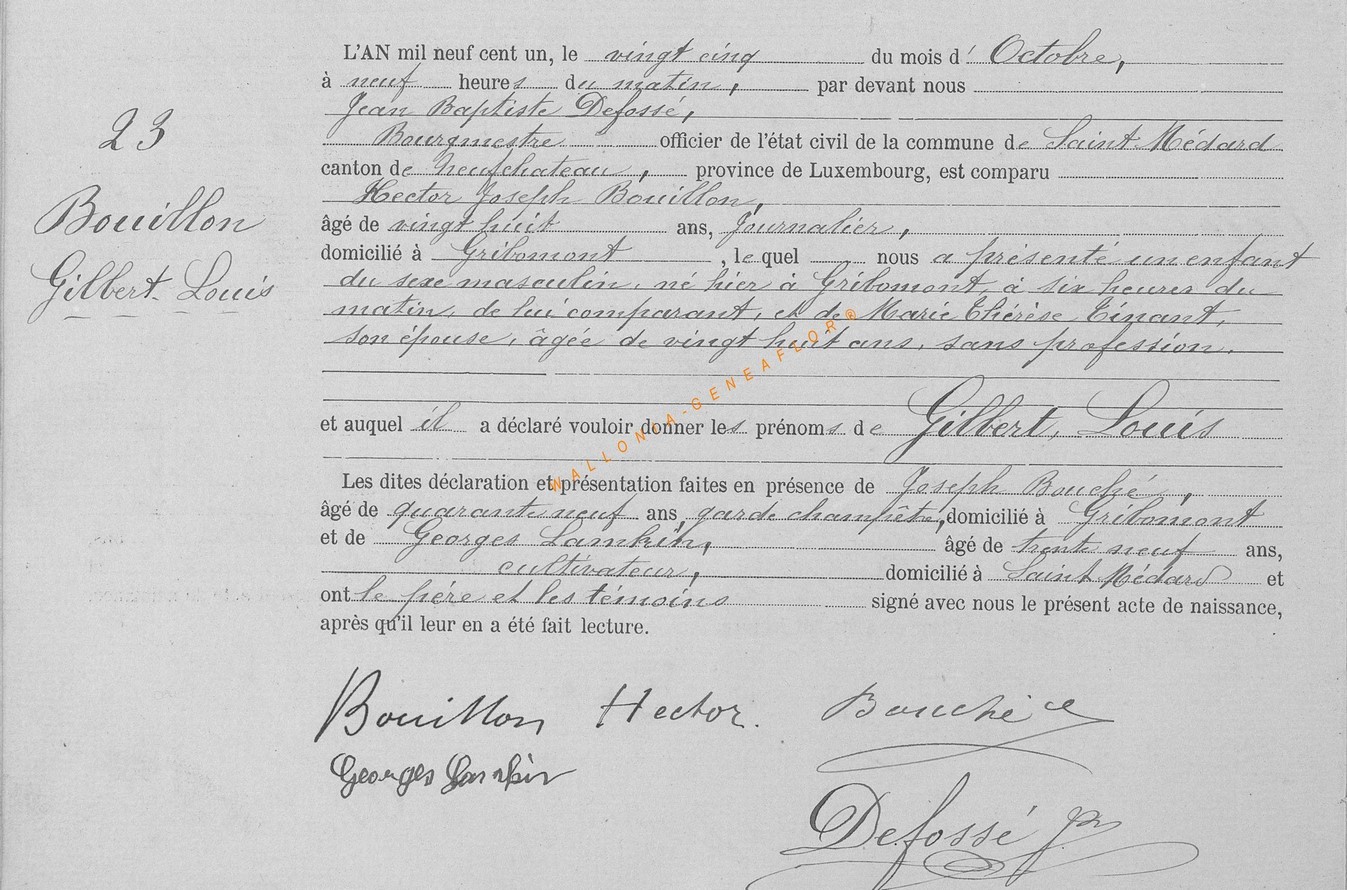 L'AN mil neuf cent un, le vingt cinq du mois d' Octobre,
à neuf heures du matin, par devant nous
Jean Baptiste Defossé,
23
Bourgmestre officier de l'état civil de la commune de Saint Médard
canton de Neufchateau, province de Luxembourg, est comparu
Hector Joseph Bouillon,
Bouillon
âgé de vingt huit ans, Journalier,
domicilié à Gribomont, le quel nous a présenté un enfant
Gilbert Louis
du sexe masculin, né hier à Gribomont, à six heures du
matin, de lui comparant, et de Marie Thérèse Tinant,
son épouse, âgée de vingt huit ans, sans profession.
et auquel il a déclaré vouloir donner les prénoms de Gilbert, Louis
WALLONIA-GENEAFLOR®
Les dites déclaration et présentation faites en présence de Joseph Bouché,
âgé de quarante neuf ans, garde champêtre, domicilié à Gribomont
et de Georges Lamkin, âgé de trente neuf ans,
cultivateur, domicilié à Saint Médard et
ont le père et les témoins signé avec nous le présent acte de naissance,
après qu'il leur en a été fait lecture.
Bouillon Hector. Bouché
Georges Lamkin
Defossé